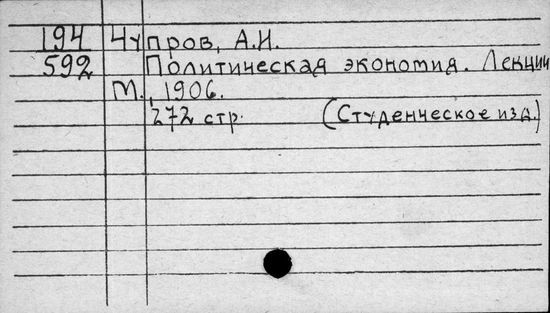 194 Чупров, А.И.
592 Политическая экономия. Лекции
М., 1906.
272 стр. (Студенческое изд.)